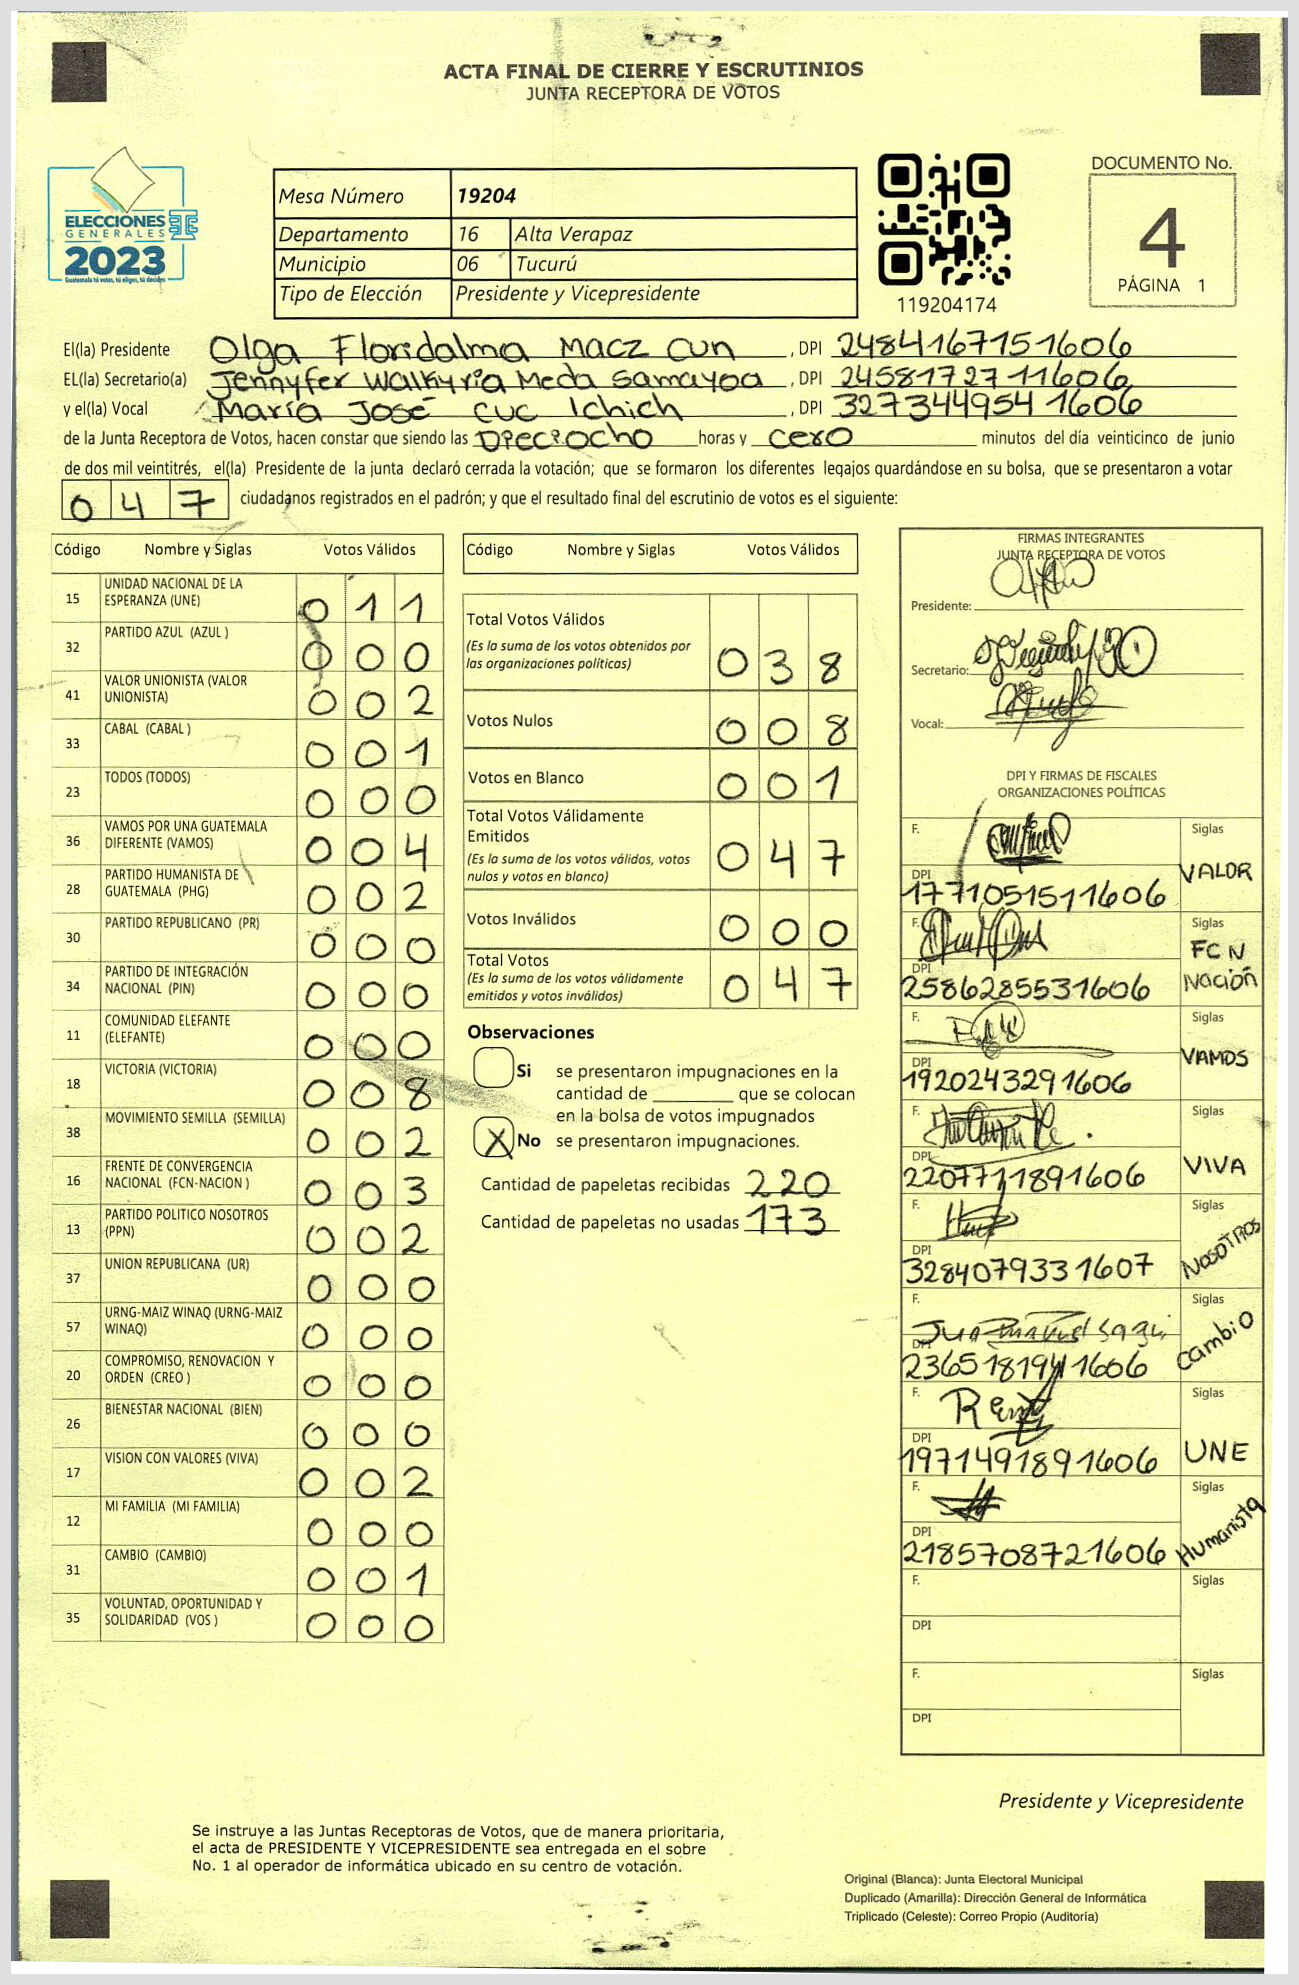 ACTA FINAL DE CIERRE Y ESCRUTINIOS
JUNTA RECEPTORA DE VOTOS
ELECCIONES
GENERALES
2023
Guatemala tú votas, tú eliges, tú decides
Mesa Número 19204
Departamento 16 Alta Verapaz
Municipio 06 Tucurú
Tipo de Elección Presidente y Vicepresidente
119204174
DOCUMENTO No.
4
PÁGINA 1
El(la) Presidente Olga Floridalma Macz Cun , DPI 2484167151606
EL(la) Secretario(a) Jennyfer Walkyria Meda Samayoa , DPI 2458172711606
y el(la) Vocal María José Cuc Ichich , DPI 3273449541606
de la Junta Receptora de Votos, hacen constar que siendo las Dieciocho horas y cero minutos del día veinticinco de junio
de dos mil veintitrés, el(la) Presidente de la junta declaró cerrada la votación; que se formaron los diferentes legajos quardándose en su bolsa, que se presentaron a votar
0 4 7 ciudadanos registrados en el padrón; y que el resultado final del escrutinio de votos es el siguiente:
Código Nombre y Siglas Votos Válidos
15 UNIDAD NACIONAL DE LA ESPERANZA (UNE) 0 1 1
32 PARTIDO AZUL (AZUL ) 0 0 0
41 VALOR UNIONISTA (VALOR UNIONISTA) 0 0 2
33 CABAL (CABAL ) 0 0 1
23 TODOS (TODOS) 0 0 0
36 VAMOS POR UNA GUATEMALA DIFERENTE (VAMOS) 0 0 4
28 PARTIDO HUMANISTA DE GUATEMALA (PHG) 0 0 2
30 PARTIDO REPUBLICANO (PR) 0 0 0
34 PARTIDO DE INTEGRACIÓN NACIONAL (PIN) 0 0 0
11 COMUNIDAD ELEFANTE (ELEFANTE) 0 0 0
18 VICTORIA (VICTORIA) 0 0 8
38 MOVIMIENTO SEMILLA (SEMILLA) 0 0 2
16 FRENTE DE CONVERGENCIA NACIONAL (FCN-NACION ) 0 0 3
13 PARTIDO POLITICO NOSOTROS (PPN) 0 0 2
37 UNION REPUBLICANA (UR) 0 0 0
57 URNG-MAIZ WINAQ (URNG-MAIZ WINAQ) 0 0 0
20 COMPROMISO, RENOVACION Y ORDEN (CREO ) 0 0 0
26 BIENESTAR NACIONAL (BIEN) 0 0 0
17 VISION CON VALORES (VIVA) 0 0 2
12 MI FAMILIA (MI FAMILIA) 0 0 0
31 CAMBIO (CAMBIO) 0 0 1
35 VOLUNTAD, OPORTUNIDAD Y SOLIDARIDAD (VOS ) 0 0 0
Código Nombre y Siglas Votos Válidos
Total Votos Válidos 0 3 8
(Es la suma de los votos obtenidos por
las organizaciones políticas)
Votos Nulos 0 0 8
Votos en Blanco 0 0 1
Total Votos Válidamente
Emitidos 0 4 7
(Es la suma de los votos válidos, votos
nulos y votos en blanco)
Votos Inválidos 0 0 0
Total Votos 0 4 7
(Es la suma de los votos válidamente
emitidos y votos inválidos)
Observaciones
Si se presentaron impugnaciones en la
cantidad de ________ que se colocan
en la bolsa de votos impugnados
X No se presentaron impugnaciones.
Cantidad de papeletas recibidas 220
Cantidad de papeletas no usadas 173
FIRMAS INTEGRANTES
JUNTA RECEPTORA DE VOTOS
Presidente:
Secretario:
Vocal:
DPI Y FIRMAS DE FISCALES
ORGANIZACIONES POLÍTICAS
F. Siglas
VALOR
DPI
1771051511606
F. Siglas
FCN
Nación
DPI
2586285531606
F. Siglas
VAMOS
DPI
1920243291606
F. Siglas
VIVA
DPI
2207711891606
F. Siglas
NOSOTROS
DPI
3284079331607
F. Siglas
Cambio
DPI
2365181941606
F. Siglas
UNE
DPI
1971491891606
F. Siglas
Humanista
DPI
2185708721606
F. Siglas
DPI
F. Siglas
DPI
Presidente y Vicepresidente
Se instruye a las Juntas Receptoras de Votos, que de manera prioritaria,
el acta de PRESIDENTE Y VICEPRESIDENTE sea entregada en el sobre
No. 1 al operador de informática ubicado en su centro de votación.
Original (Blanca): Junta Electoral Municipal
Duplicado (Amarilla): Dirección General de Informática
Triplicado (Celeste): Correo Propio (Auditoría)